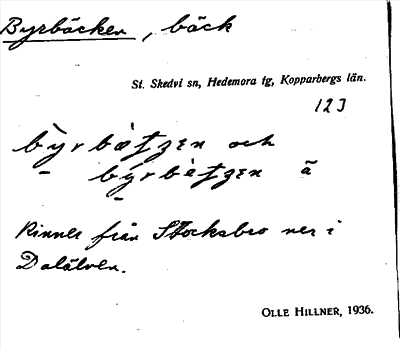 Byrbäcken, bäck
St. Skedvi sn, Hedemora tg, Kopparbergs län.
123
och
ā
Rinner från Stocksbro ner i
Dalälven.
OLLE HILLNER, 1936.